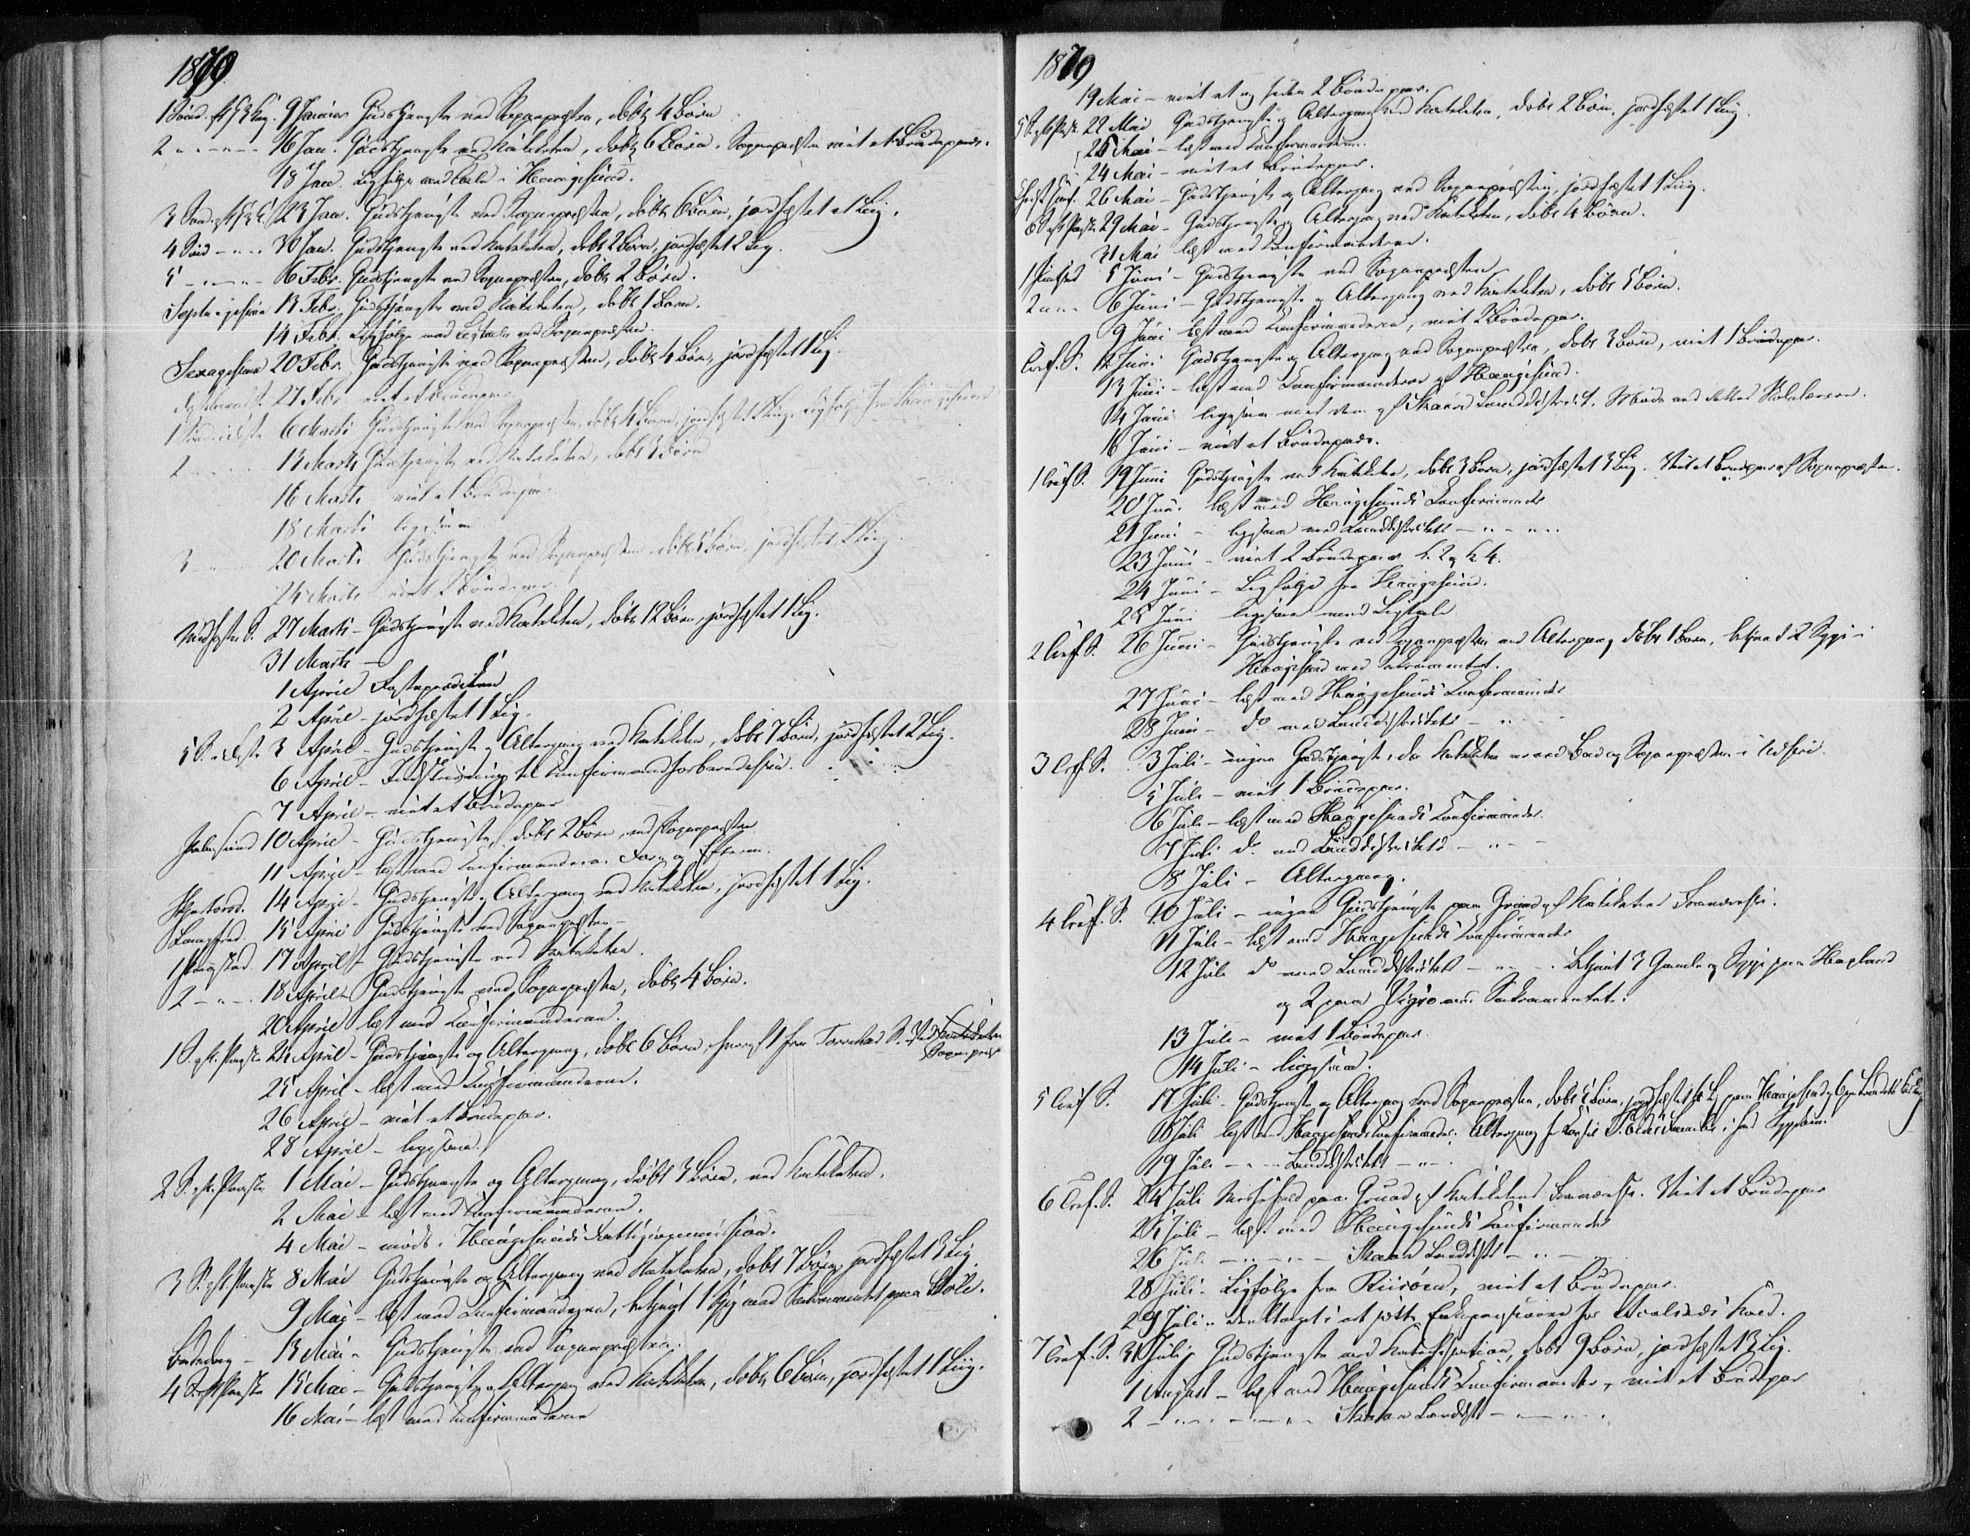 1870
1 Sönd. eft. H 3 Kg. 9 Januar Gudstjeneste ved Sognepræsten, döbt 4 Börn
2 - - - - 16 Jan. Gudstjeneste ved Katecheten, döbt 6 Börn. Sognepræsten viet et Brudepar.
18 Jan. Ligfölge med Tale i Haugesund.
3 Sönd. eft. H 3 K. 23 Jan. Gudstjeneste ved Sognepræsten, döbt 6 Börn, jordfæstet et Lig.
4 Sönd - - - 30 Jan. Gudstjeneste ved Katecheten, döbt 2 Börn, jordfæstet 2 Lig.
5 - - - - 6 Febr. Gudstjeneste ved Sognepræsten, döbt 2 Börn.
Septuagesima 13 Febr. Gudstjeneste ved Katecheten, döbt 1 Barn.
14 Febr. Ligfölge med Ligtale ved Sognepræsten.
Sexagesima 20 Febr. Gudstjeneste ved Sognepræsten, döbt 4 Börn, jordfæstet 1 Lig.
27 Febr. viet et Brudepar
6 Marts Gudstjeneste ved Sognepræsten, döbt 4 Börn, jordfæstet Lig, Ligfölge fra Haugesund
2 - - - 13 Marts Gudstjeneste ved Katecheten, döbt 3 Börn
16 Marts viet et Brudepar
18 Marts ligesaa
3 - - 20 Marts Gudstjeneste ved Sognepræsten, döbt Börn, jordfæstet Lig.
24 Marts viet 2 Brudepar
Midfaste S. 27 Marts - Gudstjeneste ved Katecheten, döbt 12 Börn, jordfæstet 1 Lig.
31 Marts -
1 April Fasteprædiken
2 April - jordfæstet 1 Lig.
5 S. i Faste 3 April - Gudstjeneste og Altergang ved Katecheten, döbt 7 Börn, jordfæstet 2 Lig.
6 April - Indskrivning til Confirmandforberedelsen.
7 April - viet et Brudepar
Palmesönd 10 April - Gudstjeneste, döbt 2 Börn, ved Sognepræsten
11 April - læst med Confirmanderne Form. og Efterm.
Skjærtorsd. 14 April - Gudstjeneste og Altergang ved Katecheten, jordfæstet 1 Lig.
Langfred. 15 April Gudstjeneste ved Sognepræsten -
1 Paaskd. 17 April - Gudstjeneste ved Katecheten.
2 - - - 18 April - Gudstjeneste ved Sognepræsten, döbt 4 Börn.
20 April læst med Confirmanderne.
1 S. eft. Paaske 24 April - Gudstjeneste og Altergang, döbt 6 Börn, hvoraf 1 fra Torvestad S. Ved Katecheten
Sognepræst
25 April - læst med Confirmanderne.
26 April - viet et Brudepar.
28 April - ligesaa.
2 S. eft. Paaske 1 Mai - Gudstjeneste og Altergang, döbt 3 Börn, ved Katecheten.
2 Mai - læst med Confirmanderne.
4 Mai - möde i Haugesunds Fattigcommission.
3 S. eft. Paaske 8 Mai Gudstjeneste og Altergang ved Katecheten, döbt 7 Börn, jordfæstet 3 Lig.
9 Mai - læst med Confirmanderne, betjent 1 Syg med Sakramentet paa
Bededag - 13 Mai - Gudstjeneste ved Sognepræsten.
4 S. eft. Paaske 15 Mai - Gudstjeneste og Altergang ved Katecheten, döbt 6 Börn, jordfæstet 1 Lig.
16 Mai - læst med Confirmanderne
1870
19 Mai - viet et og siden 2 Brudepar.
5 S. eft. Paaske 22 Mai Gudstjeneste og Altergang ved Katecheten, döbt 2 Börn, jordfæstet 1 Lig.
25 Mai - læst med Confirmanderne.
24 Mai - viet et Brudepar.
Christi Himf. 26 Mai - Gudstjeneste og Altergang ved Sognepræsten, jordfæstet 1 Lig.
6 S. eft. Paaske 29 Mai - Gudstjeneste og Altergang ved Katecheten, döbt 4 Börn.
31 Mai læst med Confirmanderne.
1 Pintsed 5 Juni - Gudstjeneste ved Sognepræsten
2 - - - 6 Juni - Gudstjeneste og Altergang ved Katecheten, döbt 5 Börn.
9 Juni læst med Confirmanderne, viet 2 Brudepar.
Tref. S. 12 Juni Gudstjeneste og Altergang ved Sognepræsten, döbt 3 Börn, viet 1 Brudepar.
13 Juni - læst med Confirmanderne af Haugesund.
14 Juni ligesaa med dem af Skaare Landdistrict. Möde med dettes Skolelærere.
16 Juni - viet et Brudepar.
1 Tref. S. 19 Juni Gudstjeneste ved Katecheten, döbt 3 Börn, jordfæstet 3 Lig. Viet et Brudepar af Sognepræsten.
20 Juni læst med Haugesunds Confirmander
21 Juni - ligesaa med Landdistriktets - - - -
23 Juni - viet 2 Brudepar k. 2 og k. 4.
24 Juni - Ligfölge fra Haugesund.
25 Juni - ligesaa med Ligtale
2 Tref. S. 26 Juni - Gudstjeneste ved Sognepræsten med Altergang, döbt 1 Barn, betjent 2 Syge i
Haugesund med Sakramentet.
27 Juni - læst med Haugesunds Confirmander
28 Juni - do med Landdistriktets - - -
3 Tref. S. 3 Juli - ingen Gudstjeneste, da Katecheten var ved Bad og Sognepræsten i Udsire.
5 Juli - viet 1 Brudepar.
6 Juli - læst med Haugesunds Confirmander.
7 Juli do med Landdistriktets - - -
8 Juli - Altergang.
4 Tref. S. 10 Juli - ingen Gudstjeneste paa Grund af Katecheten Fraværelse.
11 Juli - læst med Haugesunds Confirmander
12 Juli do med Landdistriktets - - - . Betjent 3 Gamle og Syge paa Hagland
og 2 paa med Sakramentet.
13 Juli - viet 1 Brudepar.
14 Juli - ligesaa.
5 Tref. S. 17 Juli - Gudstjeneste og Altergang ved Sognepræsten, döbt 5 Börn, jordfæstet Lig paa Haugesund
18 Juli læst med Haugesunds Confirmander. Altergang
19 Juli - - - Landdistriktets - - -
6 Tref. S. 24 Juli Messefald paa Grund af Katechetens Fraværelse. Viet et Brudepar
25 Juli - læst med Haugesunds Confirmander
26 Juli - - - - - Skaare Landdistr - - -
28 Juli - Ligfölge fra viet et Brudepar.
29 Juli - deeltaget i at sætte for Avaldsnes Kald.
7 Tref. S. 31 Juli Gudstjeneste med Katechisation, döbt 9 Börn, jordfæstet 3 Lig.
1 August - læst med Haugesunds Confirmander, viet et Brudepar
2 - - - - - - Skaare Landdist - - - -